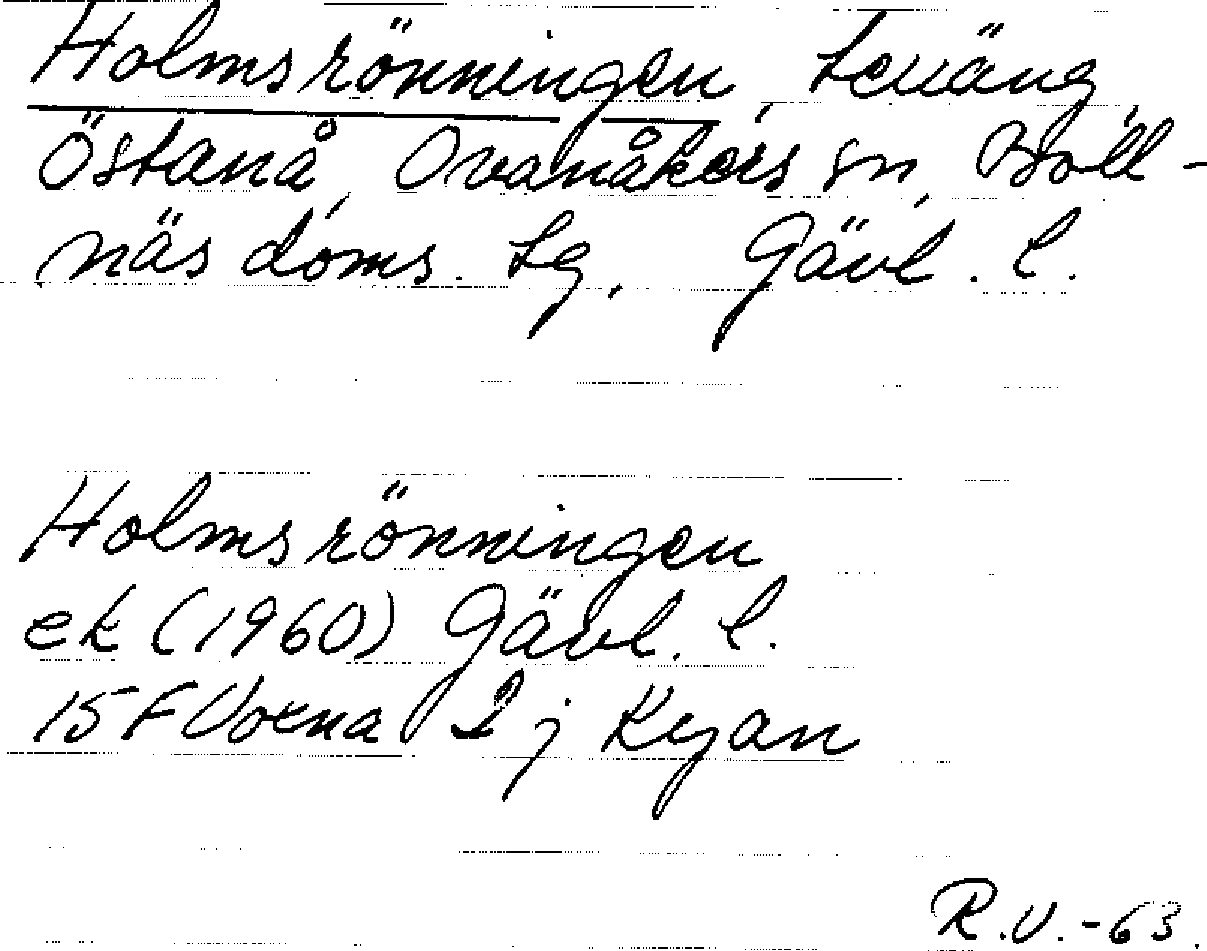 Holmsrönningen, teväng,
Östanå, Ovanåkers sn, Boll-
näs doms. tg, Gävl. l.
Holmsrönningen
ek (1960) Gävl. l.
15 F Voxna 2 j Kyan
R.V.-63.